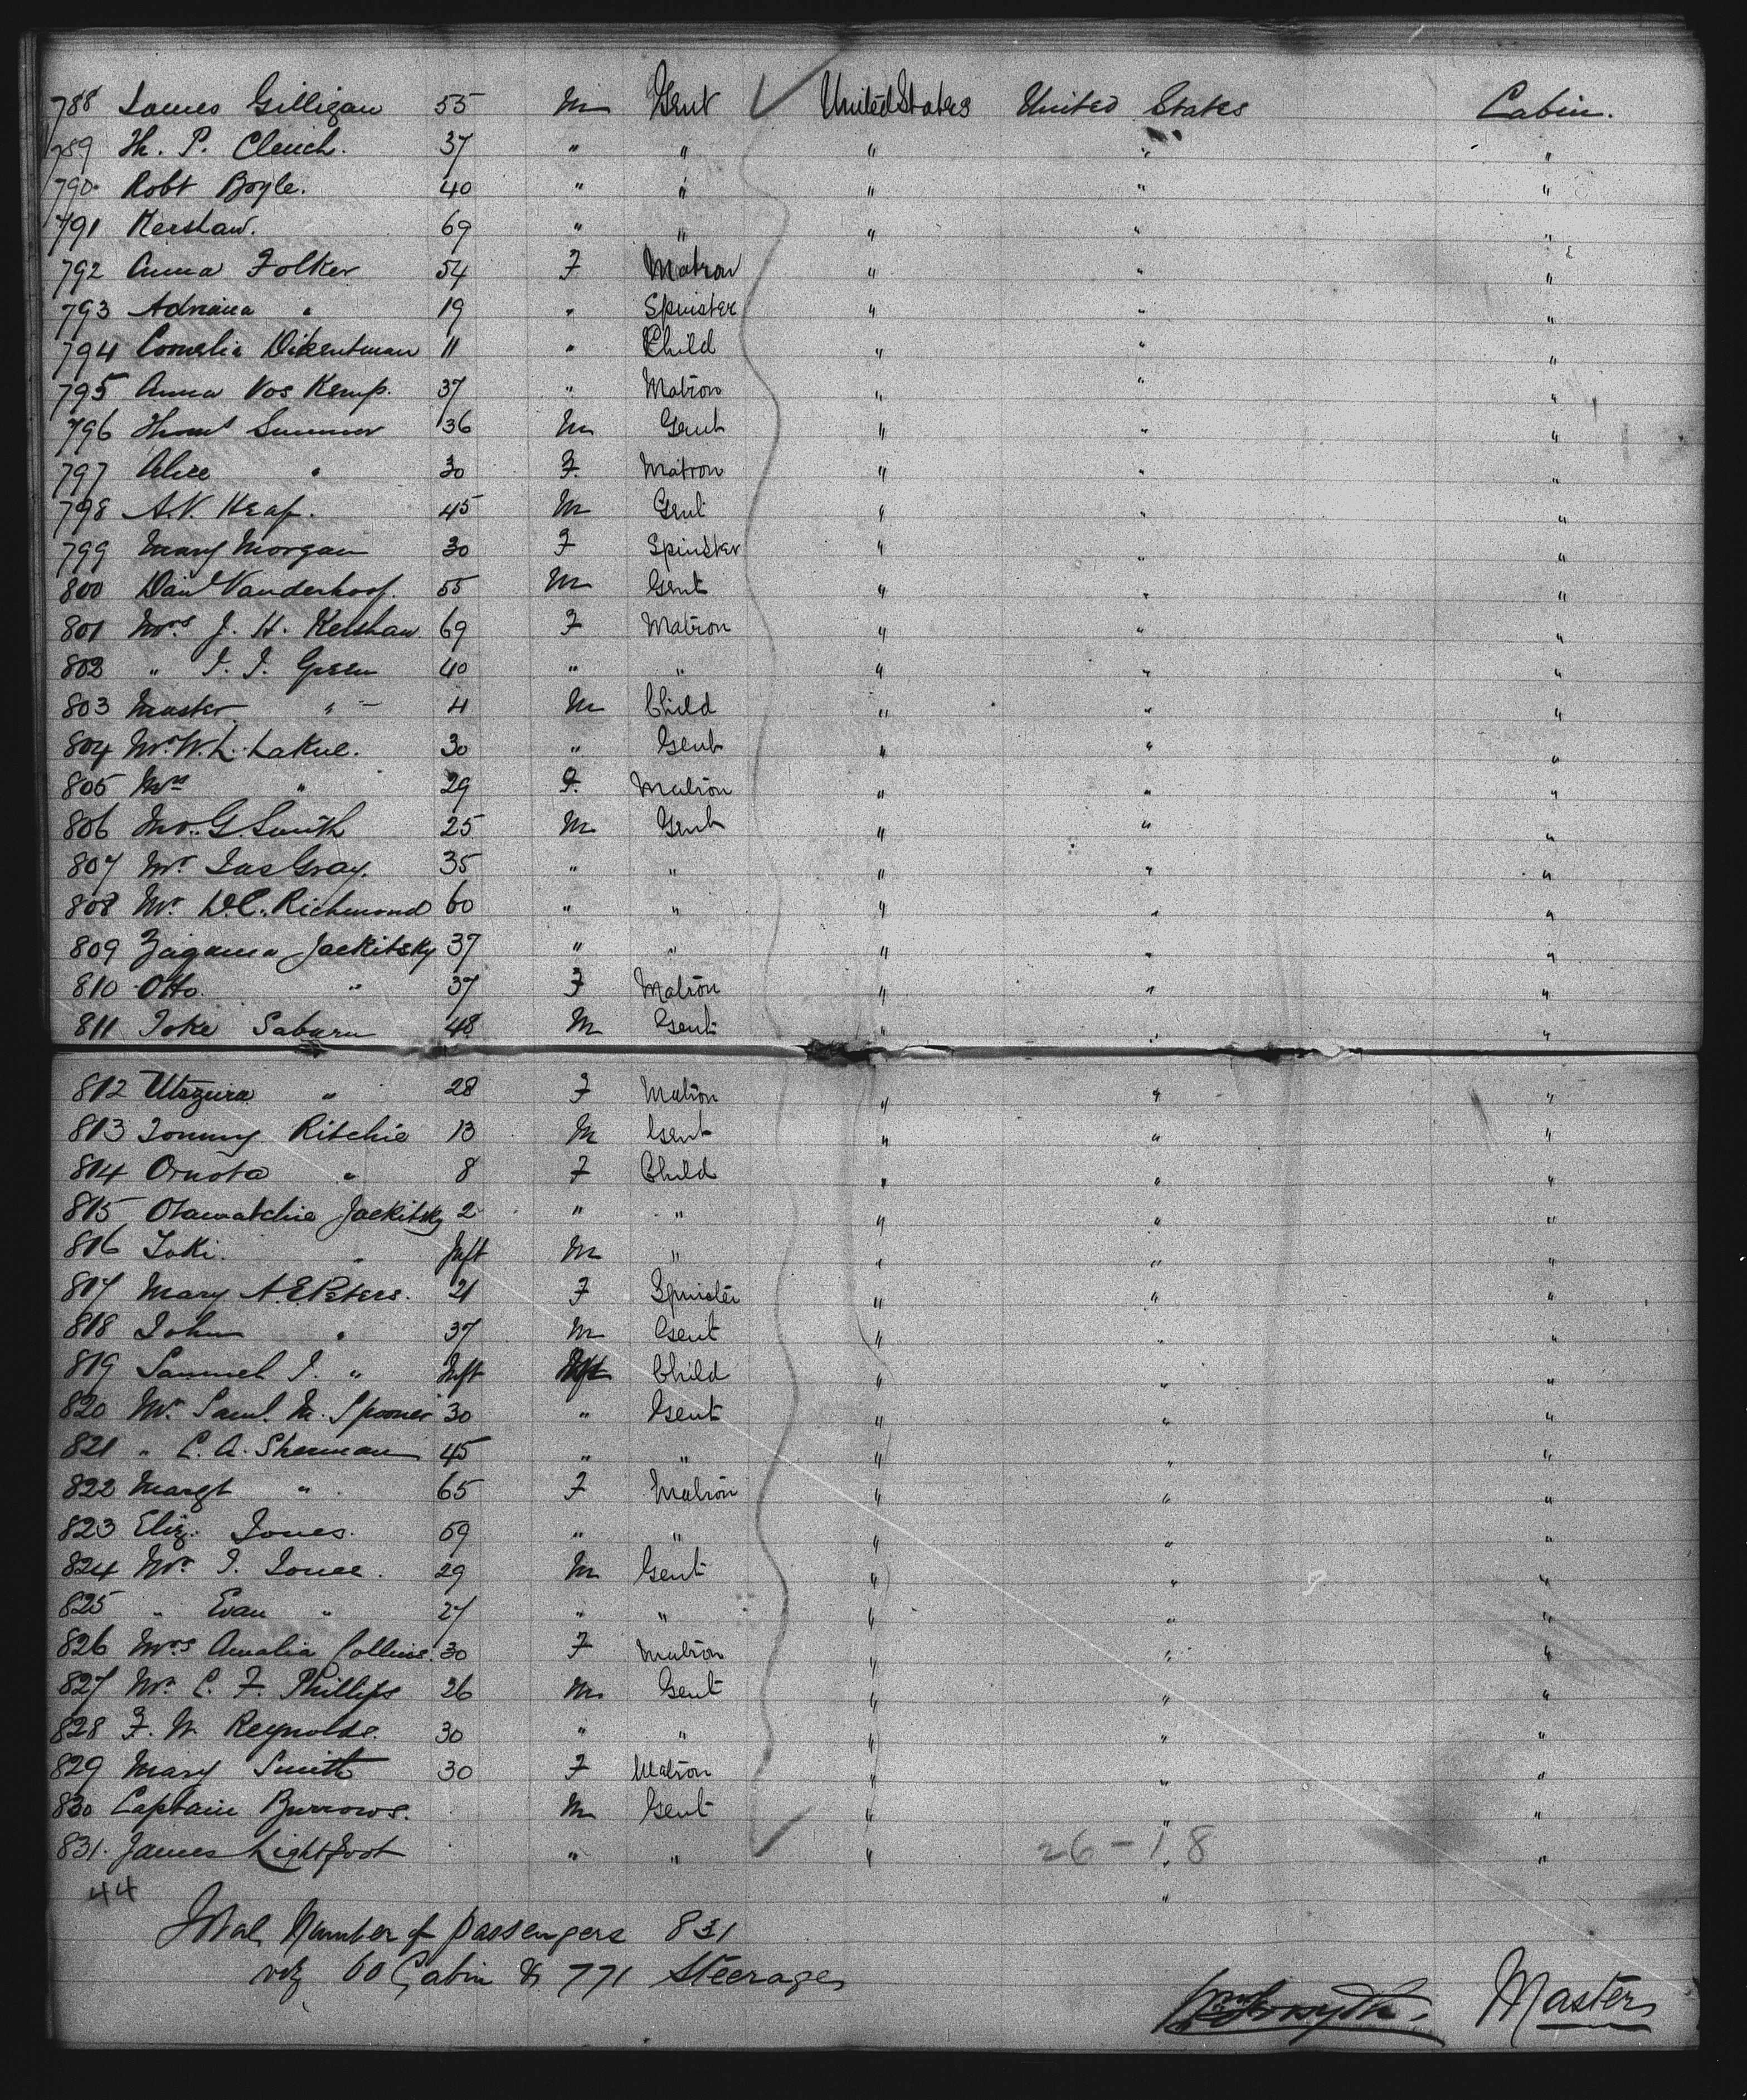 788 James Gilligan 55 M Gent United States United States Cabin.
789 Th. P. Cleuch. 37 " " " " "
790 Robt Boyle. 40 " " " " "
791 Kershaw. 69 " " " " "
792 Anna Folker 54 F Matron " " "
793 Adriana " 19 " Spinster " " "
794 Cornelia Dikentman 11 " Child " " "
795 Anna Vos Kemp. 37 " Matron " " "
796 Thos Sumner 36 M Gent " " "
797 Alice " 30 F. Matron " " "
798 A.V. Heaf. 45 M Gent " " "
799 Mary Morgan 30 F Spinster " " "
800 Danl Vanderhoof. 55 M Gent " " "
801 Mrs J. H. Kershaw. 69 F Matron " " "
802 " I. I. Green 40 " " " " "
803 Master " 4 M Child " " "
804 Mr. W. L. Lakue. 30 " Gent " " "
805 Mrs " 29 F. Matron " " "
806 Jno. G. Smith 25 M Gent " " "
807 Mr. Jas Gray. 35 " " " " "
808 Mr. D.C. Richmond 60 " " " " "
809 Jackitsky 37 " " " " "
810 Otto. " 37 F Matron " " "
811 Toke Saburu 48 M Gent " " "
812 " 28 F Matron " " "
813 Tommy Ritchie 13 M Gent " " "
814 Ornota " 8 F Child " " "
815 Otawatchie Jackitsky 2 " " " " "
816 Toki. " Inft M " " " "
817 Mary A.E. Peters. 21 F Spinster " " "
818 John " 37 M Gent " " "
819 Samuel J. " Inft Child " " "
820 Mr. Saml. M. Spooner 30 " Gent " " "
821 " C. A. Sherman 45 " " " " "
822 Margt " 65 F Matron " " "
823 Eliz. Jones. 59 " " " " "
824 Mr. I. Jones. 29 M Gent " " "
825 " Evan " 27 " " " " "
826 Mrs Amalia Collins. 30 F Matron " " "
827 Mr. C. F. Phillips 26 M. Gent " " "
828 F. W. Reynolds. 30 " " " " "
829 Mary Smith 30 F Matron " " "
830 Captain Burrows. M Gent " " "
831. James Lightfoot " " " " "
26-18
44 "
Total Number of passengers 831
viz 60 Cabin & 771 Steerage
Forsyth. Master